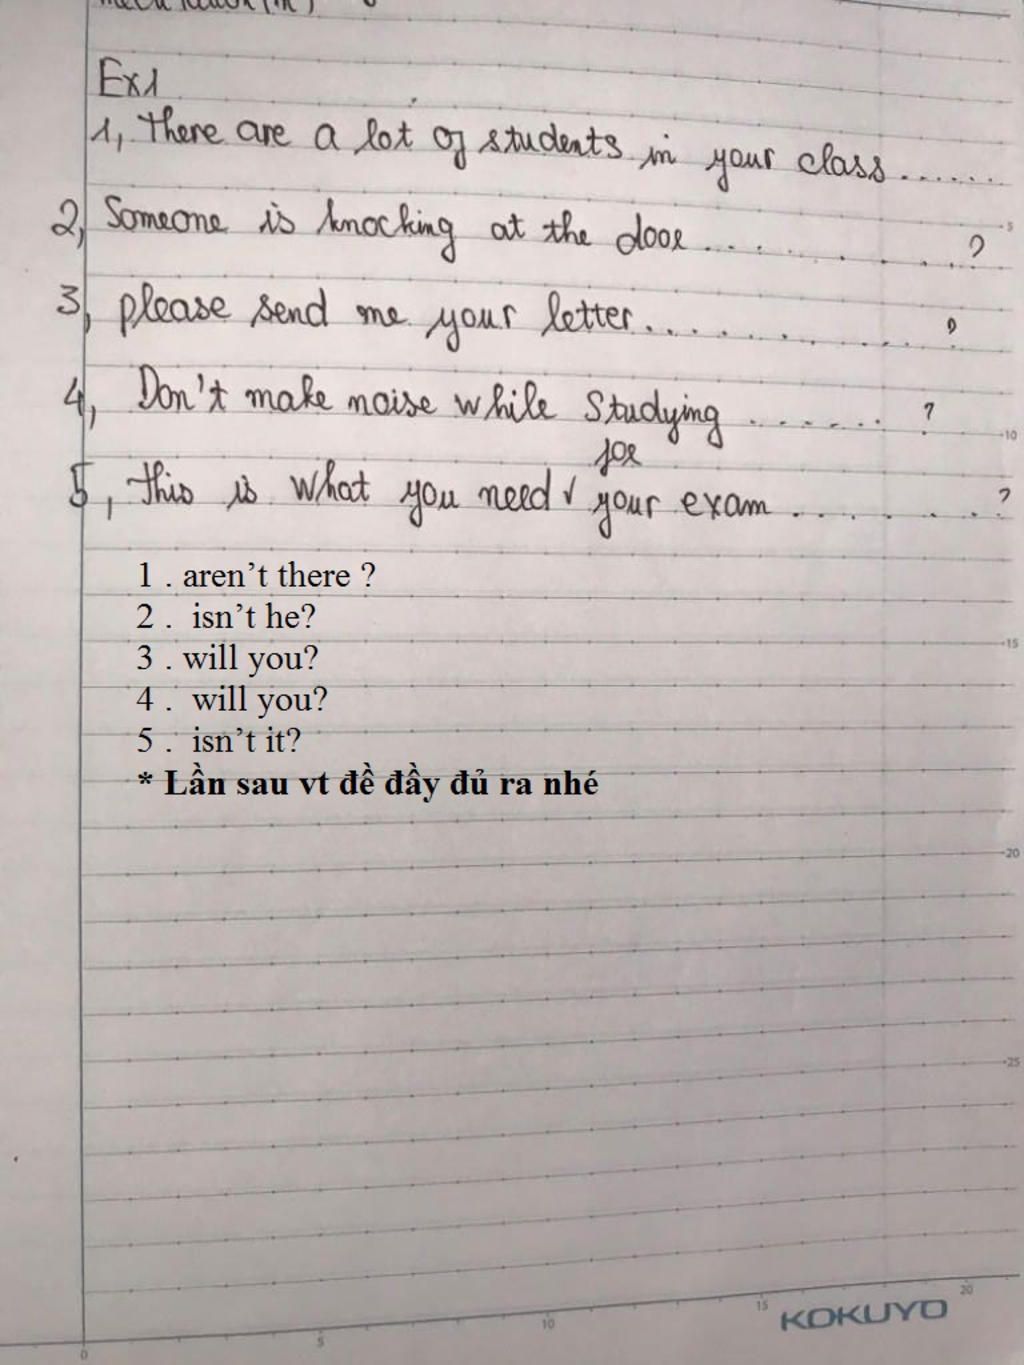 Ex1
1, there are a lot of students in your class......
2, Someone is knocking at the door..............?
3, please send me your letter..............?
4, Don't make noise while studying.......?
for
5, this is what you need √ your exam........?
1 . aren’t there ?
2 . isn’t he?
3 . will you?
4 . will you?
5 . isn’t it?
* Lần sau vt đề đầy đủ ra nhé
5
10
15
20
25
0 5 10 15 20
KOKUYO